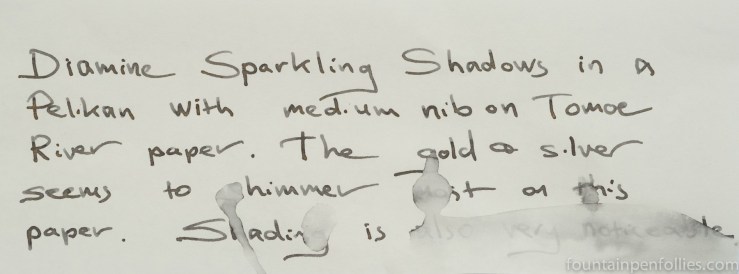 Diamine Sparkling Shadows in a
Pelikan with medium nib on Tomoe
River paper. The gold or silver
seems to shimmer on this
paper. Shading is also very noticeable.
fountainpenfollies.com